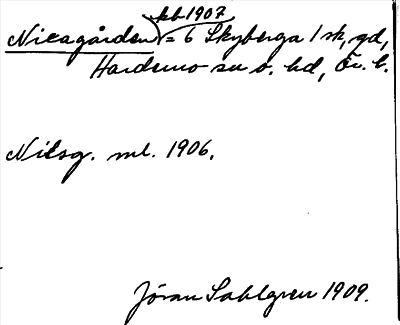 kb 1907
Nicagården = 6 Skyberga 1 sk, gd,
Hardemo sn o. hd, Ör. l.
Nilsg. ml. 1906.
Jöran Sahlgren 1909.